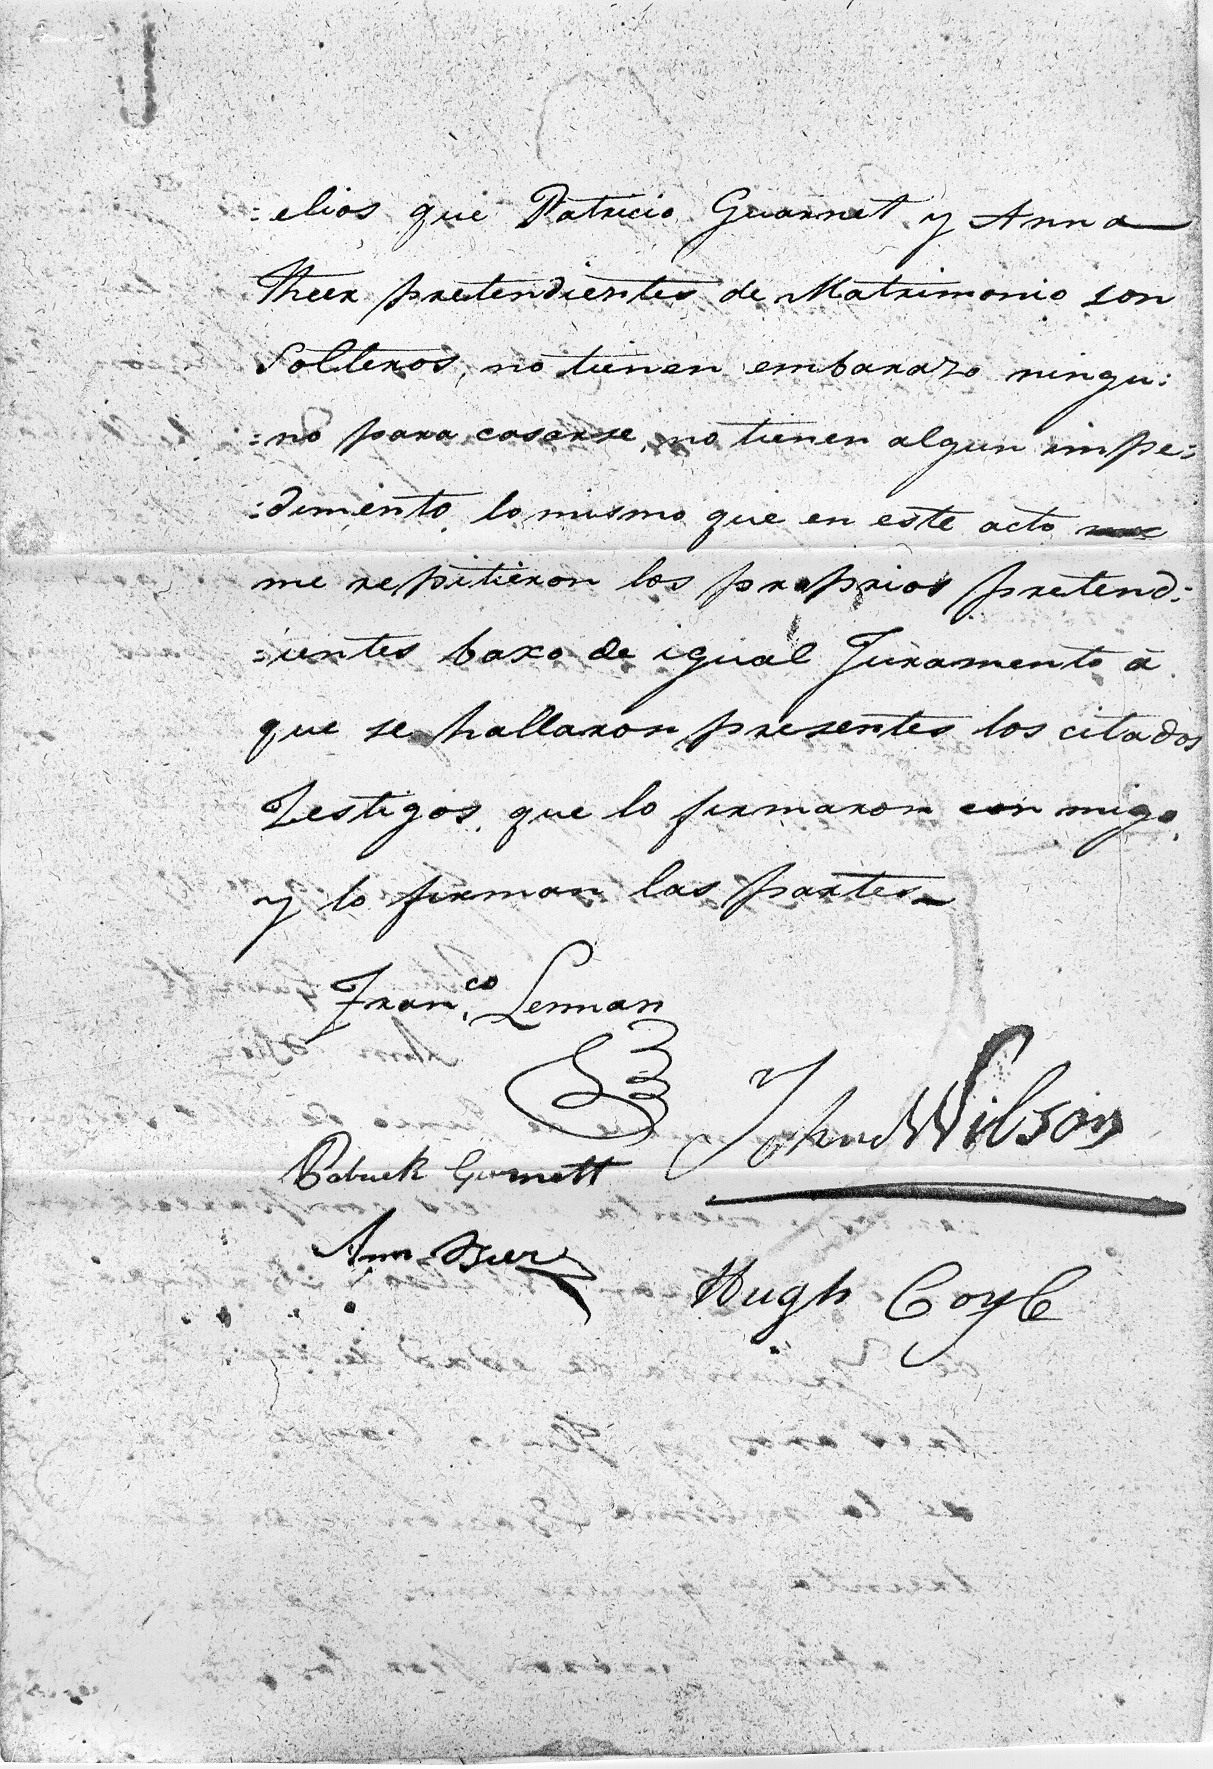 :elios que Patricio Guarnet y Anna
Theer pretendientes de Matrimonio son
Solteros, no tienen embarazo ningu:
:no para casarse, no tienen algun impe:
:dimento, lo mismo que en este acto
me repitieron los proprios pretend:
:ientes baxo de igual Juramento à
que se hallaron presentes los citados
Testigos, que lo firmaron con migo,
y lo firman las partes
Fran.co Lennan
John Wilson
Patrick Gurnett
Ann
Hugh Coyle